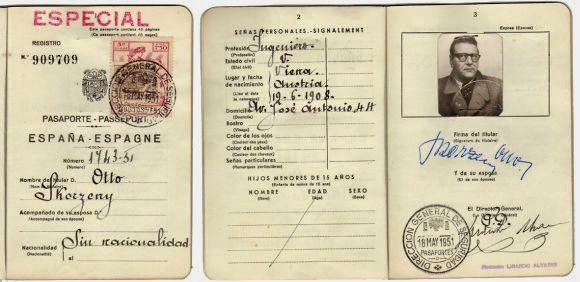 ESPECIAL
Este pasaporte contiene 40 páginas
REGISTRO
N.º 909709
PASAPORTE - PASSEPORT
ESPAÑA - ESPAGNE
Número 1743-51
Nombre del titular D. Otto
Skorzeny
Acompañado de su esposa D.ª
(Accompagné de son épouse)
Nacionalidad Sin nacionalidad
(Nationalité)
2
SEÑAS PERSONALES.-SIGNALEMENT
Profesión Ingeniero
(Profession)
Estado civil V.
(État civil)
Lugar y fecha Viena
de nacimiento Austria
(Lieu et date de naissance) 19-6-1908
Domicilio Av. José Antonio, 44
Rostro
(Visage)
Color de los ojos
(Couleur des yeux)
Color del cabello
(Couleur des cheveux)
Señas particulares
HIJOS MENORES DE 15 AÑOS
(Enfants de moins de 15 ans)
NOMBRE EDAD SEXO
3
Esposa (Épouse)
Firma del titular
(Signature du titulaire)
Y de su esposa
(Et de son épouse)
El Director General,
DIRECCION GENERAL DE SEGURIDAD
18 MAY 1951
PASAPORTES